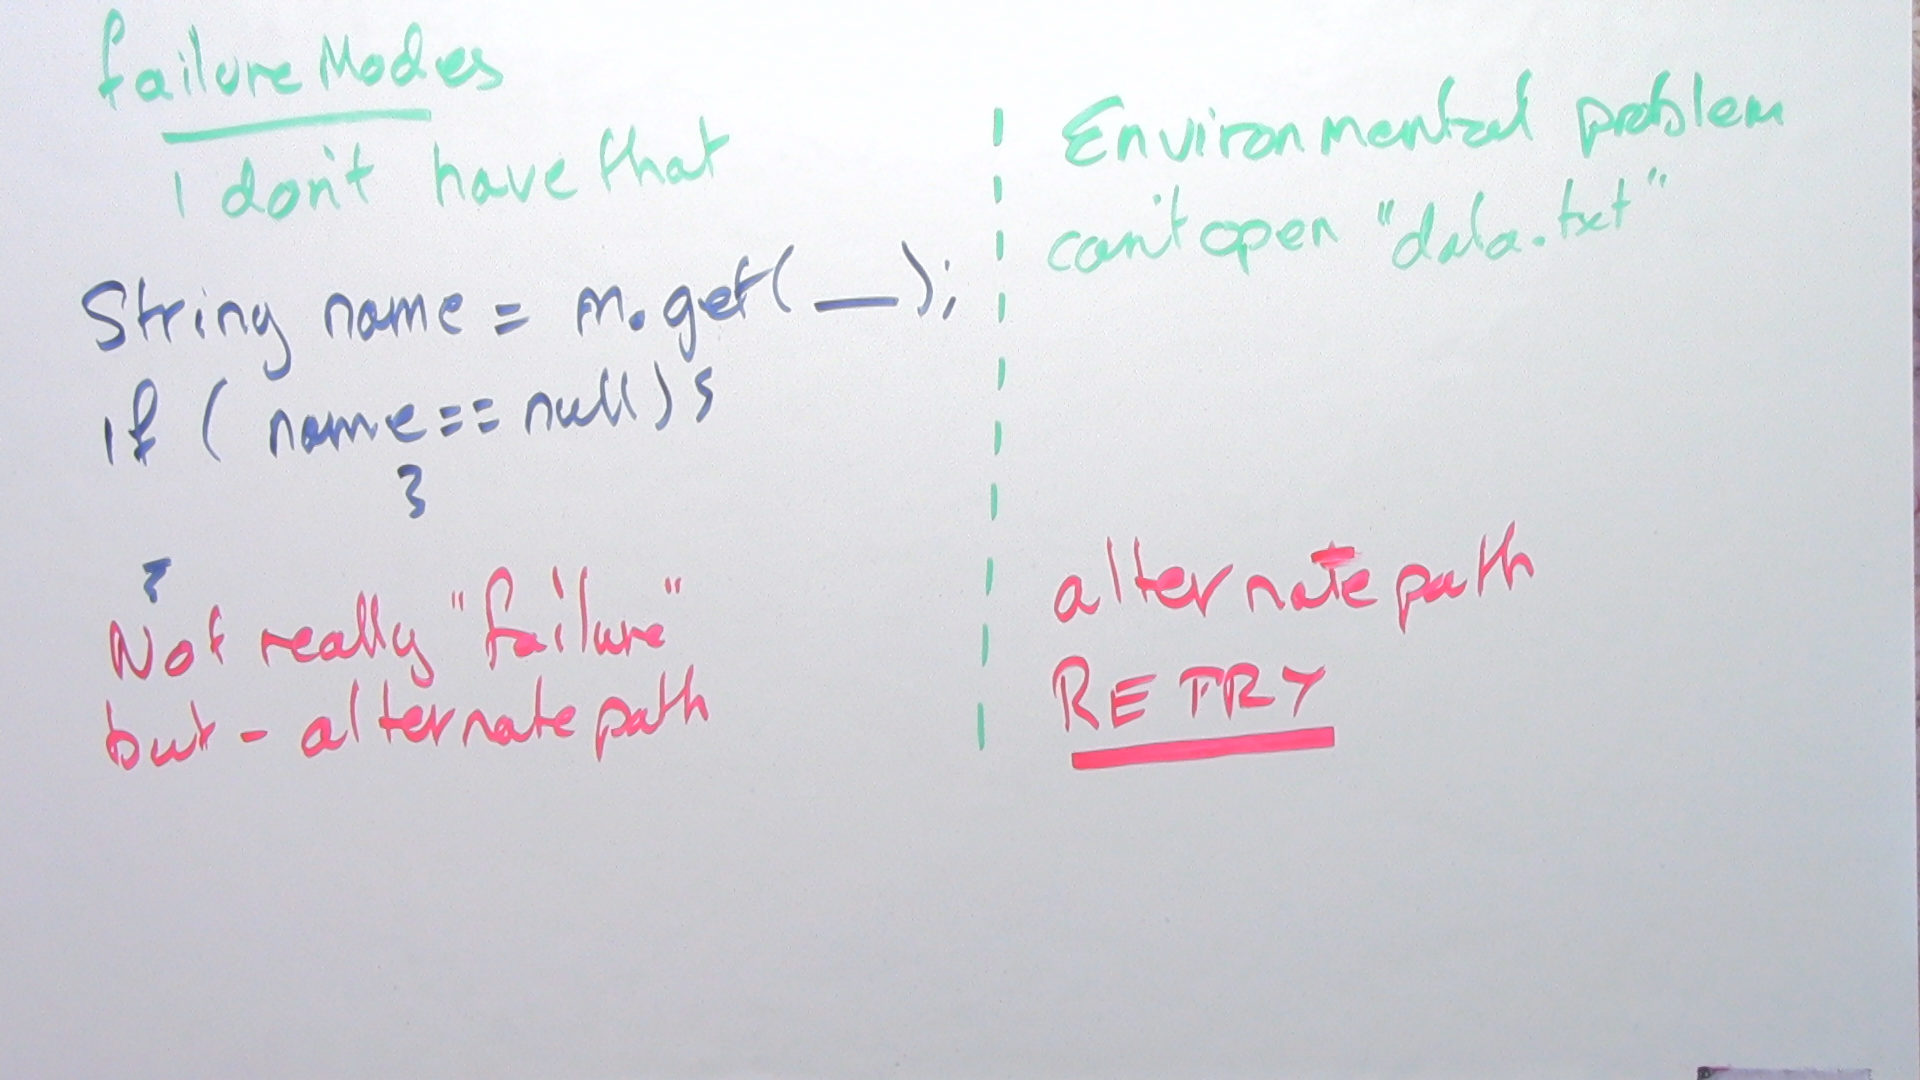 failure Modes
I don't have that
String name = m.get( __ );
if ( name == null) {
}
Not really "failure"
but - alternate path
Environmental problem
can't open "data.txt"
alternate path
RETRY